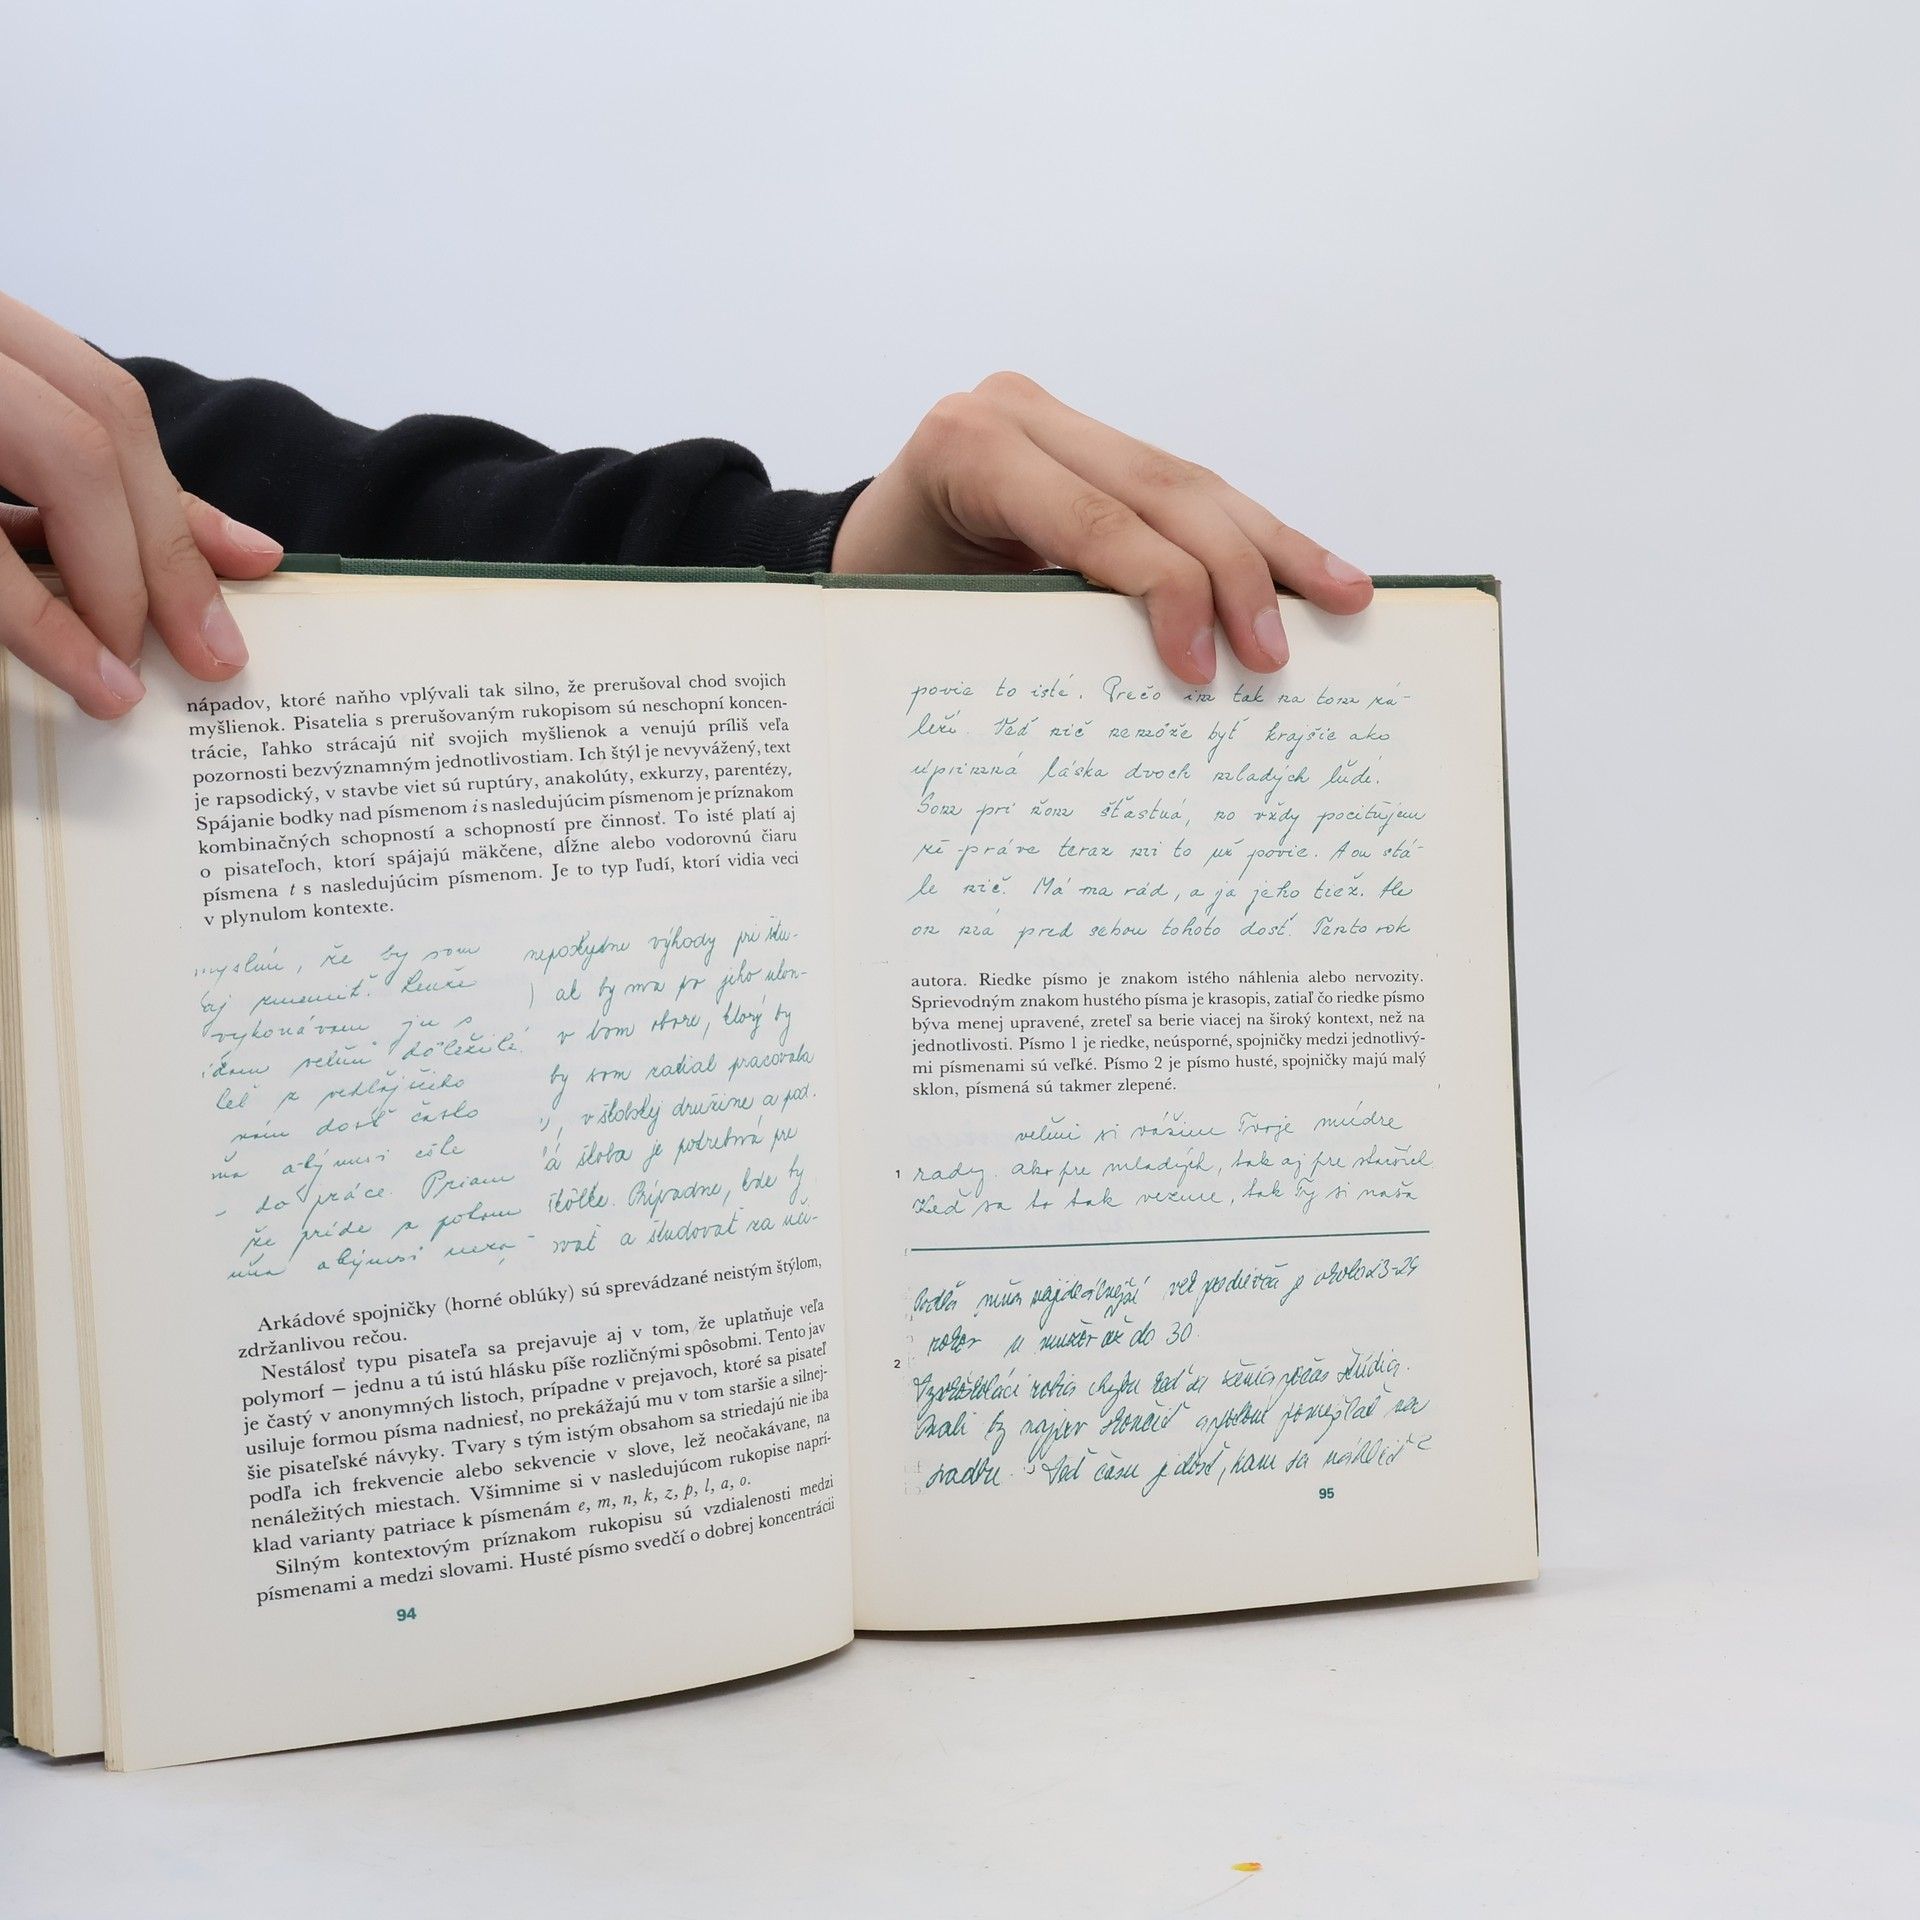 nápadov, ktoré naňho vplývali tak silno, že prerušoval chod svojich
myšlienok. Pisatelia s prerušovaným rukopisom sú neschopní koncen-
trácie, ľahko strácajú niť svojich myšlienok a venujú príliš veľa
pozornosti bezvýznamným jednotlivostiam. Ich štýl je nevyvážený, text
je rapsodický, v stavbe viet sú ruptúry, anakolúty, exkurzy, parentézy.
Spájanie bodky nad písmenom i s nasledujúcim písmenom je príznakom
kombinačných schopností a schopností pre činnosť. To isté platí aj
o pisateľoch, ktorí spájajú mäkčene, dĺžne alebo vodorovnú čiaru
písmena t s nasledujúcim písmenom. Je to typ ľudí, ktorí vidia veci
v plynulom kontexte.
myslím, že by som
zmeniť.
vykonávam ju s
veľmi dôležité.
z vedľajšieho
nám dosť často
abý musí ešte
do práce. Priam
že príde a potom
abý musí
neposkytne výhody pri štu-
ak by ma po jeho ukon-
v tom obore, ktorý by
by som zatiaľ pracovala
v školskej družine a pod.
á škola je potrebná pre
škôlke. Prípadne, kde by
vať a študovať za uči-
Arkádové spojničky (horné oblúky) sú sprevádzané neistým štýlom,
zdržanlivou rečou.
Nestálosť typu pisateľa sa prejavuje aj v tom, že uplatňuje veľa
polymorf — jednu a tú istú hlásku píše rozličnými spôsobmi. Tento jav
je častý v anonymných listoch, prípadne v prejavoch, ktoré sa pisateľ
usiluje formou písma nadniesť, no prekážajú mu v tom staršie a silnej-
šie pisateľské návyky. Tvary s tým istým obsahom sa striedajú nie iba
podľa ich frekvencie alebo sekvencie v slove, lež neočakávane, na
nenáležitých miestach. Všimnime si v nasledujúcom rukopise naprí-
klad varianty patriace k písmenám e, m, n, k, z, p, l, a, o.
Silným kontextovým príznakom rukopisu sú vzdialenosti medzi
písmenami a medzi slovami. Husté písmo svedčí o dobrej koncentrácii
94
povie to isté. Prečo im tak na tom zá-
leží. Veď nič nemôže byť krajšie ako
úprimná láska dvoch mladých ľudí.
Som pri ňom šťastná, no vždy pociťujem
že práve teraz mi to už povie. A on stá-
le nič. Má ma rád, a ja jeho tiež. Ale
on má pred sebou tohoto dosť. Tento rok
autora. Riedke písmo je znakom istého náhlenia alebo nervozity.
Sprievodným znakom hustého písma je krasopis, zatiaľ čo riedke písmo
býva menej upravené, zreteľ sa berie viacej na široký kontext, než na
jednotlivosti. Písmo 1 je riedke, neúsporné, spojničky medzi jednotlivý-
mi písmenami sú veľké. Písmo 2 je písmo husté, spojničky majú malý
sklon, písmená sú takmer zlepené.
veľmi si vážime Tvoje múdre
1 rady. ako pre mladých, tak aj pre starších.
Keď sa to tak vezme, tak Ty si naša
Podľa mňa najideálnejší vek pre dievča je okolo 23-24
rokov u mužov až do 30.
2
Vysokoškoláci robia chybu keď sa ženia počas štúdia.
Mali by najprv skončiť a potom pomýšľať na
svadbu. Veď času je dosť, kam sa náhliť
95